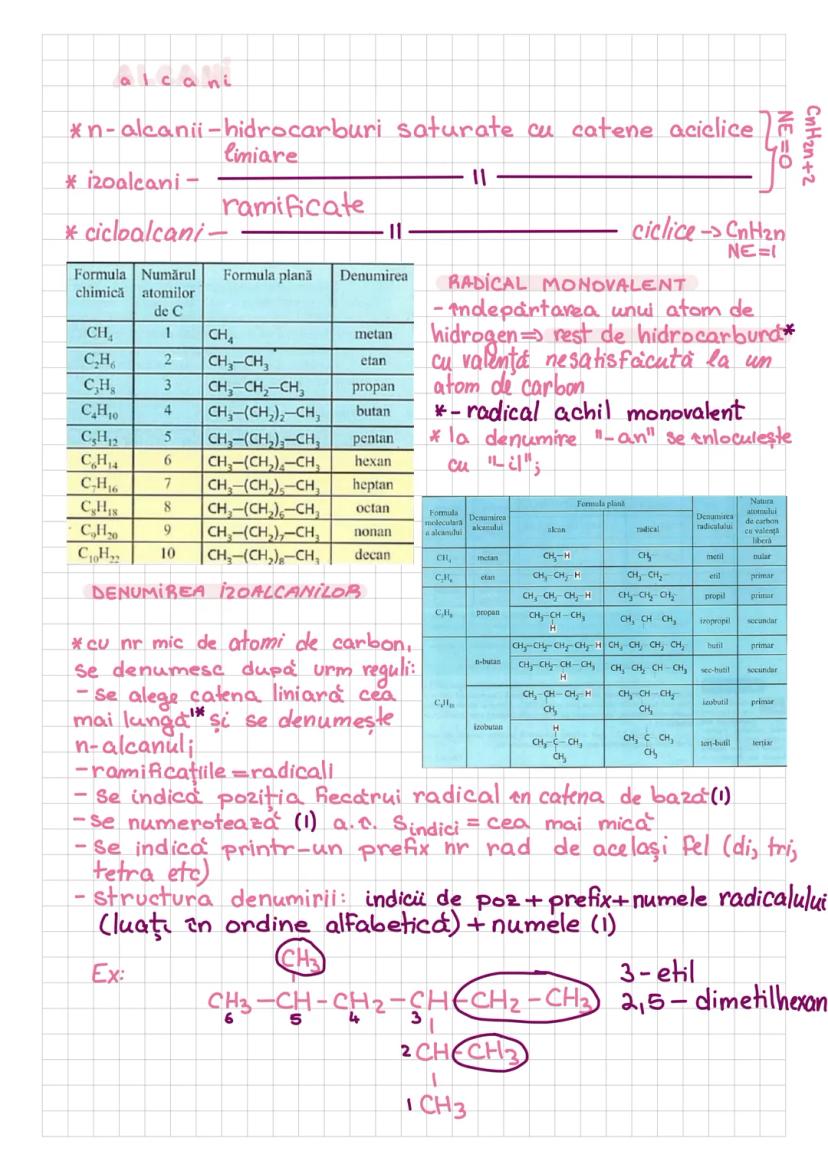 alcani
* n-alcanii - hidrocarburi saturate cu catene aciclice
liniare
* izoalcani - — 11 —
ramificate
CnH2n+2
NE=0
* cicloalcani - — 11 — ciclice -> CnH2n
NE=1
Formula chimică | Numărul atomilor de C | Formula plană | Denumirea
CH₄ 1 CH₄ metan
C₂H₆ 2 CH₃—CH₃ etan
C₃H₈ 3 CH₃—CH₂—CH₃ propan
C₄H₁₀ 4 CH₃—(CH₂)₂—CH₃ butan
C₅H₁₂ 5 CH₃—(CH₂)₃—CH₃ pentan
C₆H₁₄ 6 CH₃—(CH₂)₄—CH₃ hexan
C₇H₁₆ 7 CH₃—(CH₂)₅—CH₃ heptan
C₈H₁₈ 8 CH₃—(CH₂)₆—CH₃ octan
C₉H₂₀ 9 CH₃—(CH₂)₇—CH₃ nonan
C₁₀H₂₂ 10 CH₃—(CH₂)₈—CH₃ decan
RADICAL MONOVALENT
- îndepărtarea unui atom de
hidrogen => rest de hidrocarbură*
cu valență nesatisfăcută la un
atom de carbon
*- radical achil monovalent
* la denumire "-an" se înlocuiește
cu "-il";
Formula moleculară a alcanului | Denumirea alcanului | Formula plană | alcan | radical | Denumirea radicalului | Natura atomului de carbon cu valență liberă
CH₄ metan CH₃—H CH₃ metil nular
C₂H₆ etan CH₃-CH₂-H CH₃-CH₂- etil primar
C₃H₈ propan CH₃-CH₂-CH₂-H CH₃-CH₂-CH₂- propil primar
CH₃-CH-CH₃ CH₃ CH CH₃ izopropil secundar
H
C₄H₁₀ n-butan CH₃-CH₂-CH₂-CH₂-H CH₃ CH₂ CH₂ CH₂ butil primar
CH₃-CH₂-CH-CH₃ CH₃ CH₂ CH CH₃ sec-butil secundar
H
izobutan CH₃-CH-CH₂-H CH₃-CH-CH₂- izobutil primar
CH₃ CH₃
H
CH₃-C-CH₃ CH₃ C CH₃ tert-butil terțiar
CH₃ CH₃
DENUMIREA IZOALCANILOR
* cu nr mic de atomi de carbon,
se denumesc după urm reguli:
- se alege catena liniară cea
mai lungă¹* și se denumește
n-alcanul;
- ramificațiile = radicali
- se indică poziția fiecărui radical în catena de bază (1)
- se numerotează (1) a.î. Sindici = cea mai mică
- se indică printr-un prefix nr rad de același fel (di, tri,
tetra etc)
- structura denumirii: indicii de poz + prefix + numele radicalului
(luați în ordine alfabetică) + numele (1)
Ex:
CH₃
CH₃ - CH - CH₂ - CH - CH₂ - CH₃
6 5 4 3
2 CH - CH₃
1 CH₃
3 - etil
2,5 - dimetilhexan